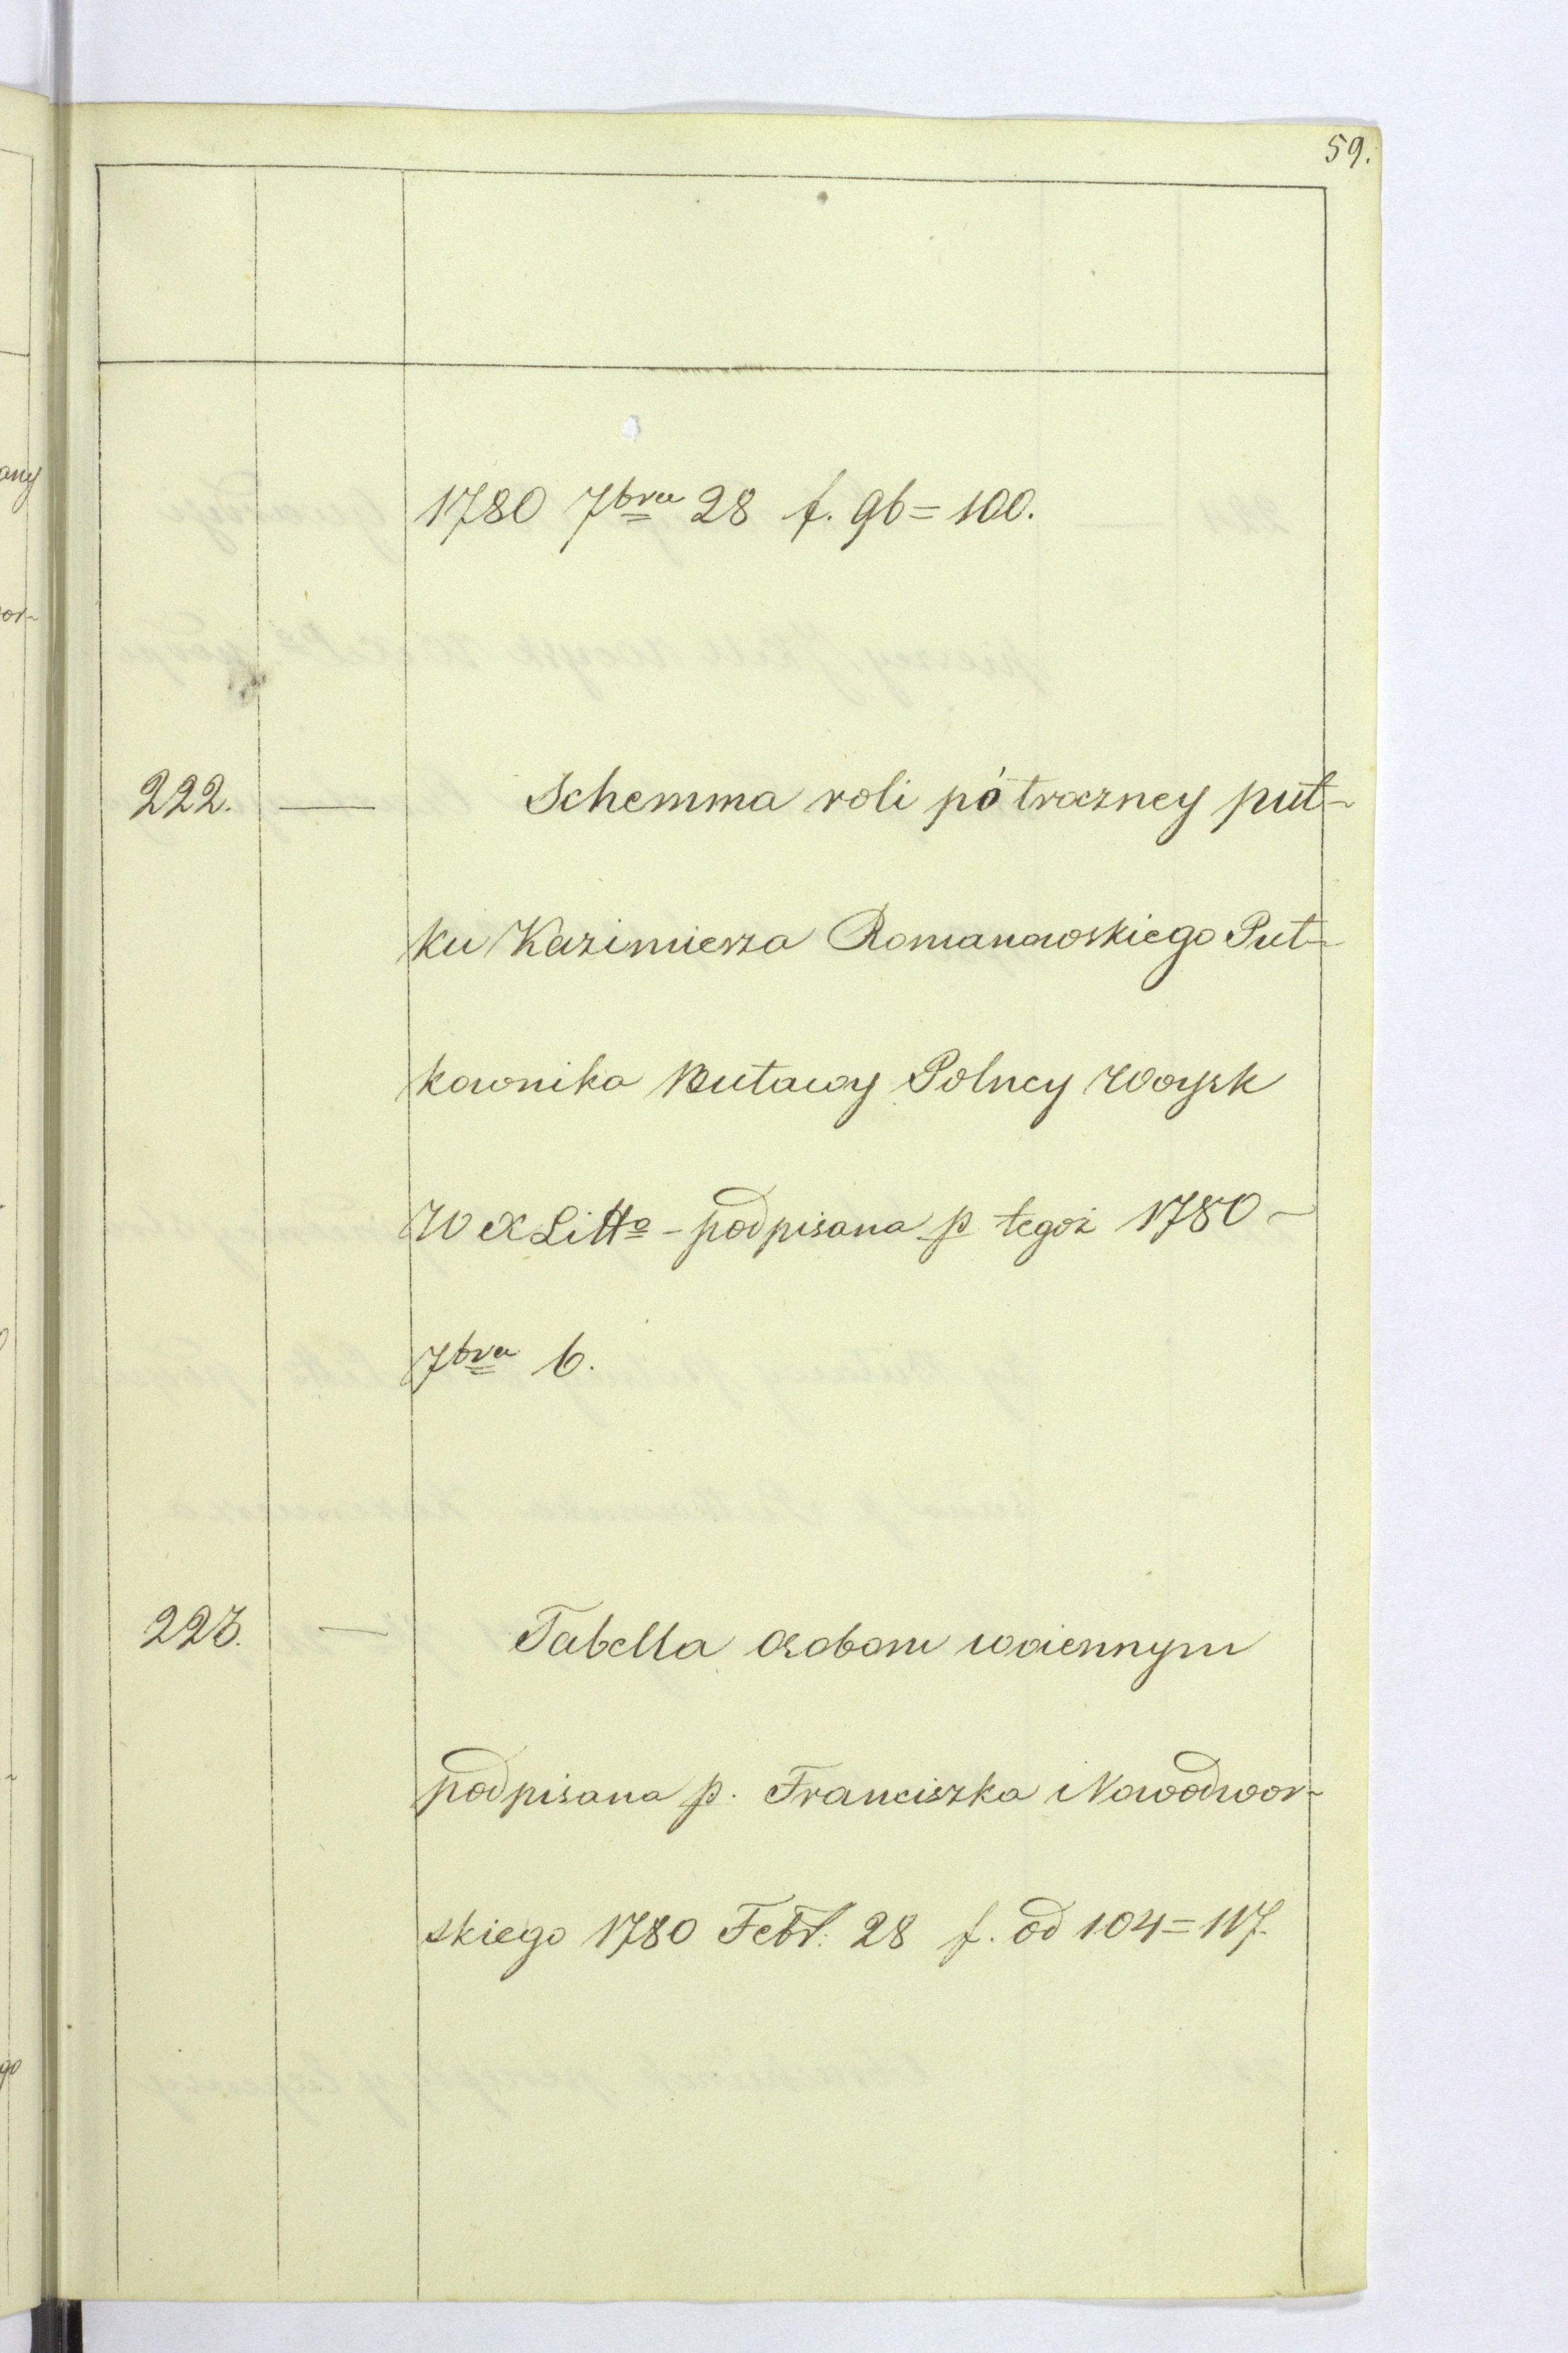 59.
1780 7bra 28 f. 96=100.
222. — Schemma roli półroczney puł-
ku Kazimierza Romanowskiego Puł-
kownika Buławy Polney Woysk
W X Litto - podpisana p tegoż 1780 -
7bra 6.
223. — Tabella osobom woiennym
podpisana p. Franciszka Nowodwor-
skiego 1780 Febr: 28 f. od 104=117.